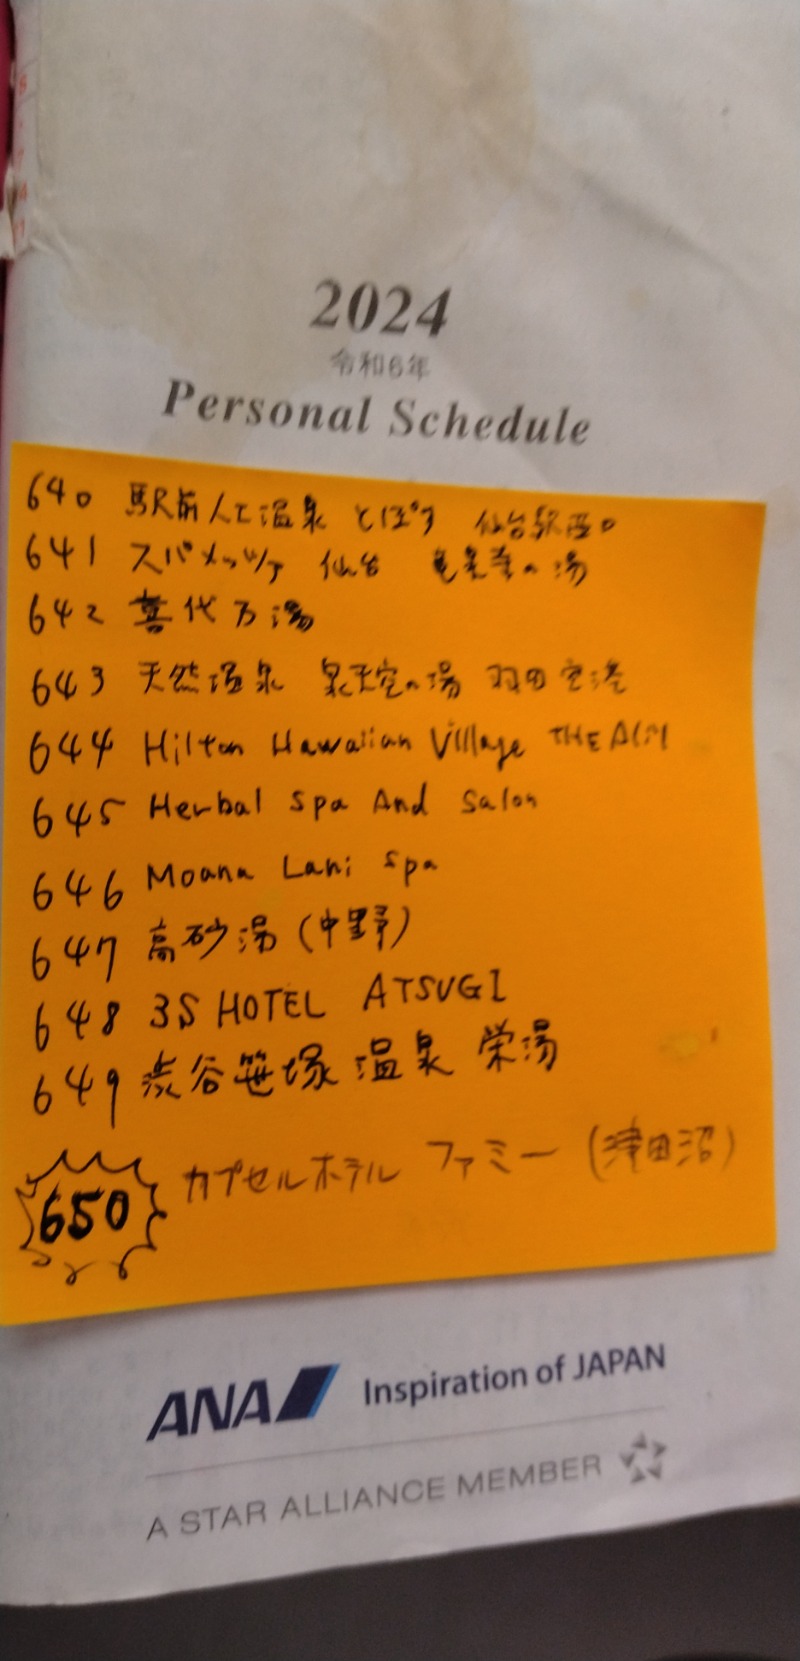 2024
令和6年
Personal Schedule
640 駅前人工温泉 とぽす 仙台駅西口
641 スパメッツァ 仙台 竜泉寺の湯
642 喜代乃湯
643 天然温泉 泉天空の湯 羽田空港
644 Hilton Hawaiian Village THE
645 Herbal Spa And Salon
646 Moana Lani Spa
647 高砂湯(中野)
648 3S HOTEL ATSUGI
649 渋谷笹塚 温泉 栄湯
650 カプセルホテル ファミー (津田沼)
ANA Inspiration of JAPAN
A STAR ALLIANCE MEMBER